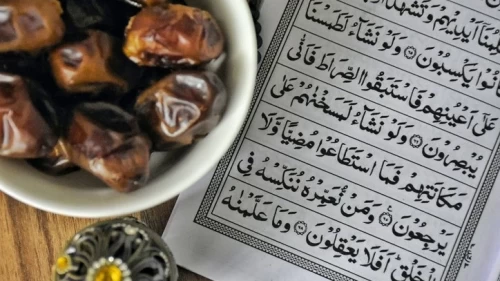 أَيْدِيهِمْ وَتَشْهَدُ
يَكْسِبُونَ ۝٦٥ وَلَوْ نَشَآءُ لَطَمَسْنَا
عَلٰٓى اَعْيُنِهِمْ فَاسْتَبَقُوا الصِّرَاطَ فَاَنّٰى
يُبْصِرُوْنَ ۝٦٦ وَلَوْ نَشَآءُ لَمَسَخْنٰهُمْ عَلٰى
مَكَانَتِهِمْ فَمَا اسْتَطَاعُوْا مُضِيًّا وَّلَا
يَرْجِعُوْنَ ۝٦٧ وَمَنْ نُّعَمِّرْهُ نُنَكِّسْهُ فِى
الْخَلْقِ اَفَلَا يَعْقِلُوْنَ ۝٦٨ وَمَا عَلَّمْنٰهُ